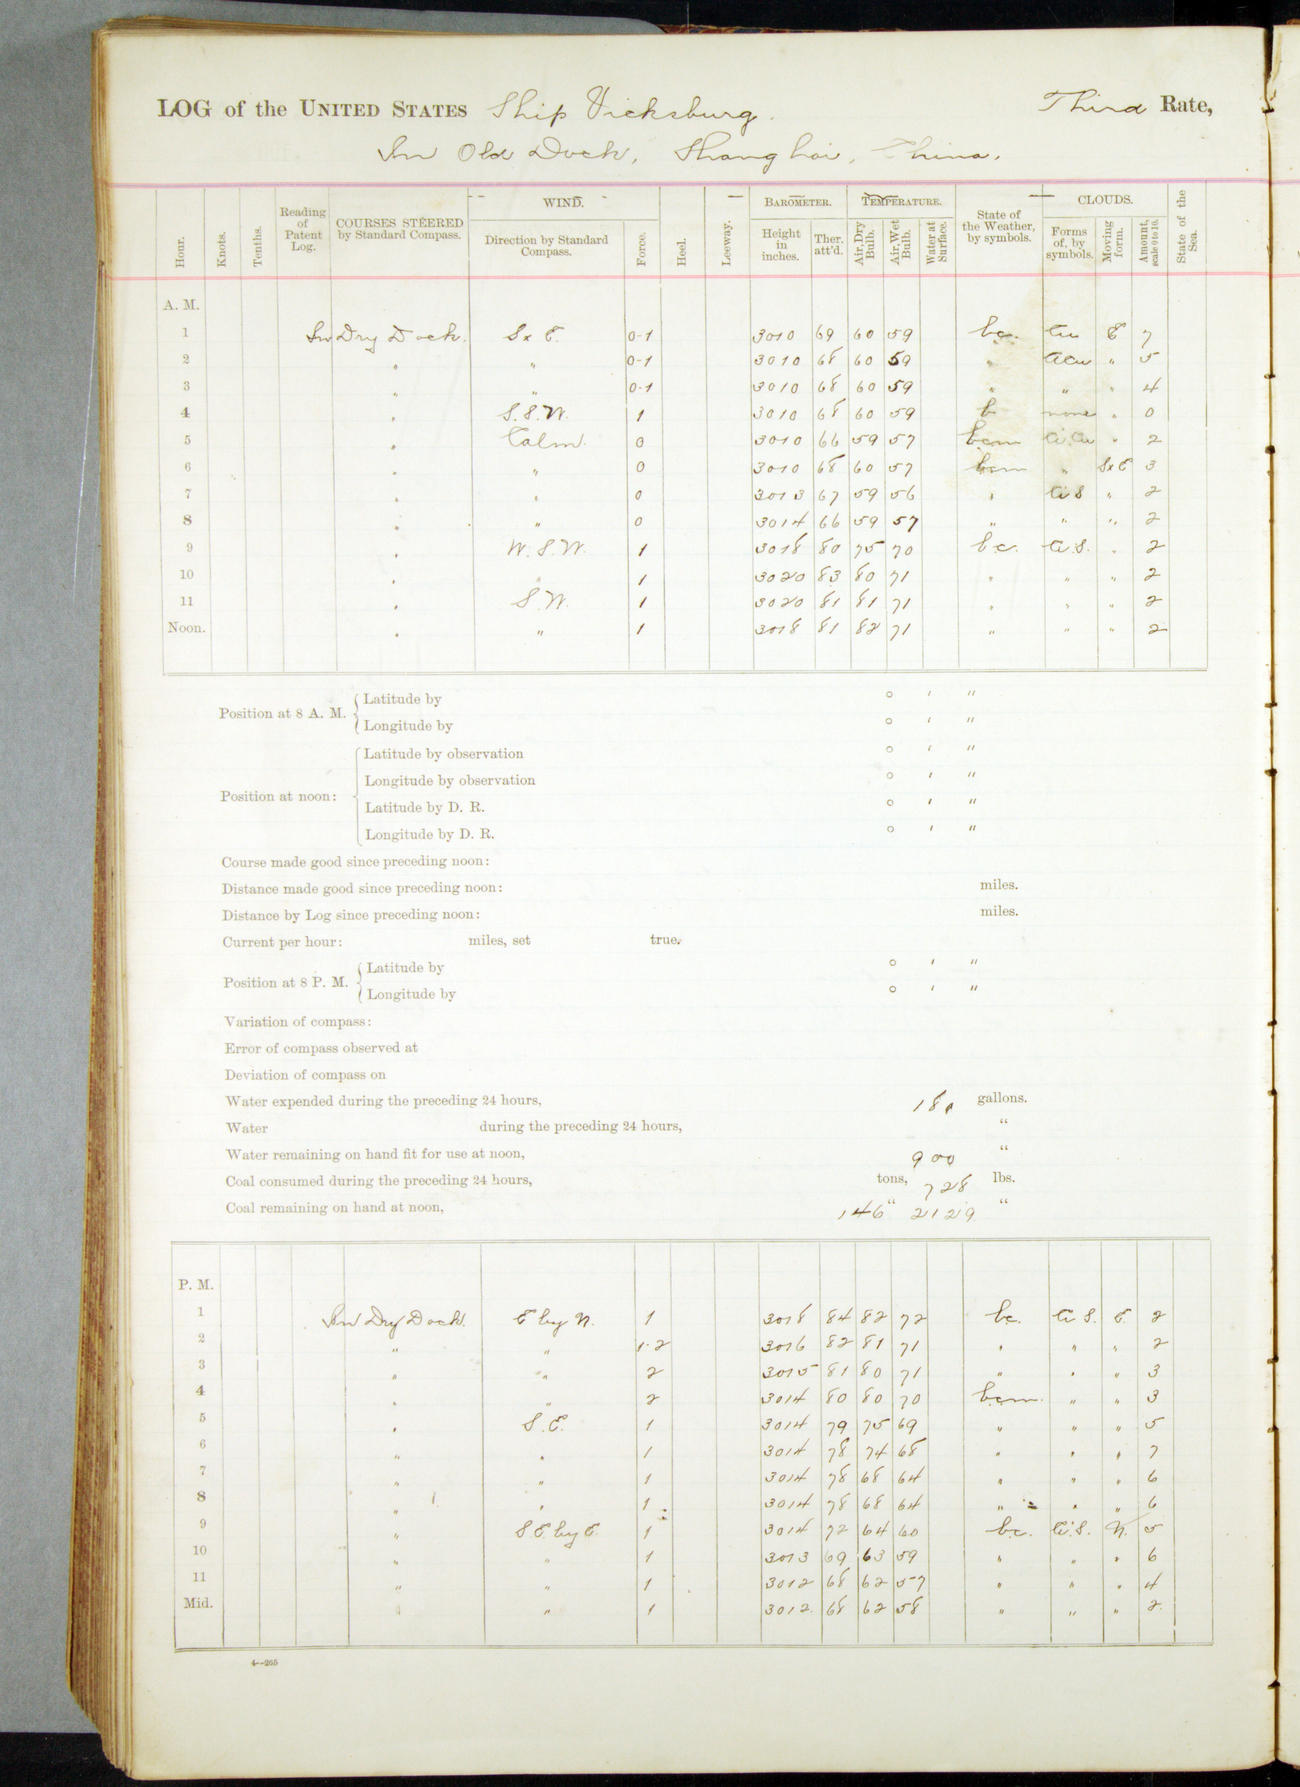 LOG of the UNITED STATES Ship Vicksburg. Third Rate,
In Old Dock, Shanghai, China.
Hour. Knots. Tenths. Reading of Patent Log. COURSES STEERED by Standard Compass. WIND. Direction by Standard Compass. Force. Heel. Leeway. BAROMETER. Height in inches. Ther. att'd. TEMPERATURE. Air, Dry Bulb. Air, Wet Bulb. Water at Surface. State of the Weather, by symbols. CLOUDS. Forms of, by symbols. Moving form. Amount, scale 0 to 10. State of the Sea.
A. M.
1 In Dry Dock. S x E. 0-1 3010 69 60 59 bc. Cu E 7
2 " " 0-1 3010 68 60 59 " A Cu " 5
3 " " 0-1 3010 68 60 59 " " " 4
4 " S.S.W. 1 3010 68 60 59 b none " 0
5 " Calm. 0 3010 66 59 57 bcm Ci.Cu " 2
6 " " 0 3010 68 60 57 bcm " SxE 3
7 " " 0 3013 67 59 56 " Ci S " 2
8 " " 0 3014 66 59 57 " " " 2
9 " W.S.W. 1 3018 80 75 70 b.c. Ci.S. " 2
10 " " 1 3020 83 80 71 " " " 2
11 " S.W. 1 3020 81 81 71 " " " 2
Noon. " " 1 3018 81 82 71 " " " 2
Position at 8 A. M. Latitude by ° ' "
Longitude by ° ' "
Position at noon: Latitude by observation ° ' "
Longitude by observation ° ' "
Latitude by D. R. ° ' "
Longitude by D. R. ° ' "
Course made good since preceding noon:
Distance made good since preceding noon: miles.
Distance by Log since preceding noon: miles.
Current per hour: miles, set true.
Position at 8 P. M. Latitude by ° ' "
Longitude by ° ' "
Variation of compass:
Error of compass observed at
Deviation of compass on
Water expended during the preceding 24 hours, 180 gallons.
Water during the preceding 24 hours, "
Water remaining on hand fit for use at noon, 900 "
Coal consumed during the preceding 24 hours, tons, 728 lbs.
Coal remaining on hand at noon, 146 " 2129 "
P. M.
1 In Dry Dock. E by N. 1 3018 84 82 72 bc. Ci S. E. 2
2 " " 1-2 3016 82 81 71 " " " 2
3 " " 2 3015 81 80 71 " " " 3
4 " " 2 3014 80 80 70 bcm. " " 3
5 " S.E. 1 3014 79 75 69 " " " 5
6 " " 1 3014 78 74 68 " " " 7
7 " " 1 3014 78 68 64 " " " 6
8 " " 1 3014 78 68 64 " " " 6
9 " S E by E. 1 3014 72 64 60 b.c. Ci.S. N. 5
10 " " 1 3013 69 63 59 " " " 6
11 " " 1 3012 68 62 57 " " " 4
Mid. " " 1 3012 68 62 58 " " " 2
4—265